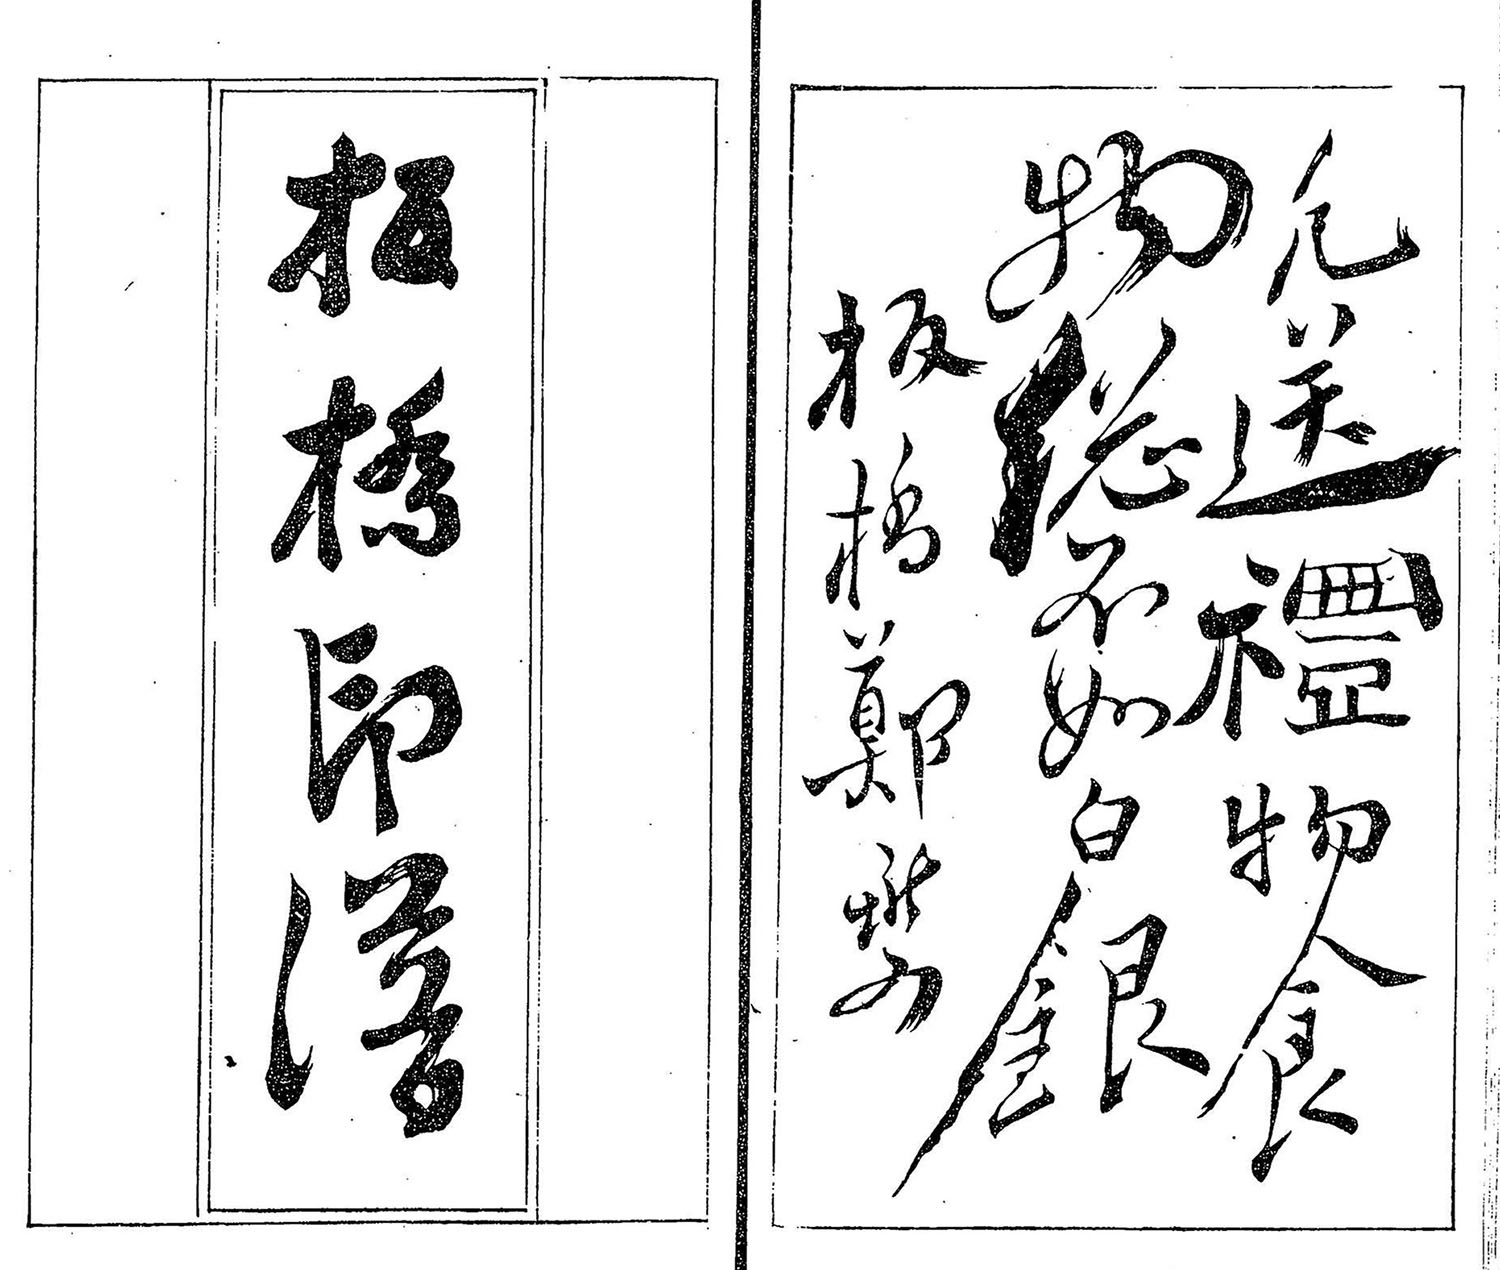 凡送禮物食
物総不如白銀
板橋鄭燮
板橋印譜